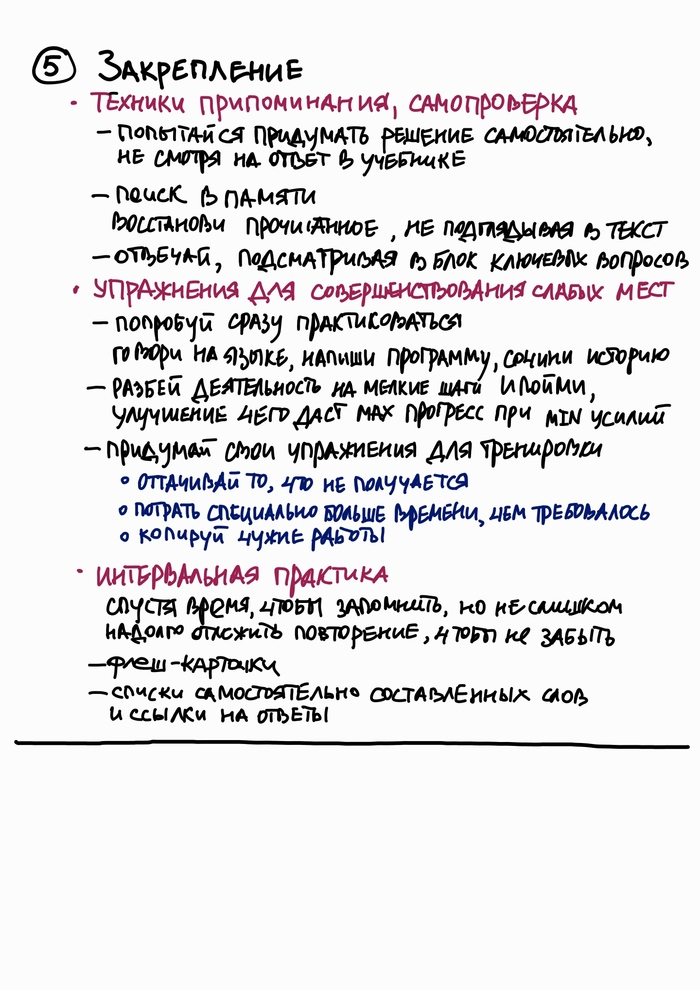 5 ЗАКРЕПЛЕНИЕ
• ТЕХНИКИ ПРИПОМИНАНИЯ, САМОПРОВЕРКА
– ПОПЫТАЙСЯ ПРИДУМАТЬ РЕШЕНИЕ САМОСТОЯТЕЛЬНО,
НЕ СМОТРЯ НА ОТВЕТ В УЧЕБНИКЕ
– ПОИСК В ПАМЯТИ
ВОССТАНОВИ ПРОЧИТАННОЕ, НЕ ПОДГЛЯДЫВАЯ В ТЕКСТ
– ОТВЕЧАЙ, ПОДСМАТРИВАЯ В БЛОК КЛЮЧЕВЫХ ВОПРОСОВ
• УПРАЖНЕНИЯ ДЛЯ СОВЕРШЕНСТВОВАНИЯ СЛАБЫХ МЕСТ
– ПОПРОБУЙ СРАЗУ ПРАКТИКОВАТЬСЯ
ГОВОРИ НА ЯЗЫКЕ, НАПИШИ ПРОГРАММУ, СОЧИНИ ИСТОРИЮ
– РАЗБЕЙ ДЕЯТЕЛЬНОСТЬ НА МЕЛКИЕ ШАГИ И ПОЙМИ,
УЛУЧШЕНИЕ ЧЕГО ДАСТ MAX ПРОГРЕСС ПРИ MIN УСИЛИЙ
– ПРИДУМАЙ СВОИ УПРАЖНЕНИЯ ДЛЯ ТРЕНИРОВКИ
◦ ОТТАЧИВАЙ ТО, ЧТО НЕ ПОЛУЧАЕТСЯ
◦ ПОТРАТЬ СПЕЦИАЛЬНО БОЛЬШЕ ВРЕМЕНИ, ЧЕМ ТРЕБОВАЛОСЬ
◦ КОПИРУЙ ЧУЖИЕ РАБОТЫ
• ИНТЕРВАЛЬНАЯ ПРАКТИКА
СПУСТЯ ВРЕМЯ, ЧТОБЫ ЗАПОМНИТЬ, НО НЕ СЛИШКОМ
НАДОЛГО ОТЛОЖИТЬ ПОВТОРЕНИЕ, ЧТОБЫ НЕ ЗАБЫТЬ
– ФЛЕШ-КАРТОЧКИ
– СПИСКИ САМОСТОЯТЕЛЬНО СОСТАВЛЕННЫХ СЛОВ
И ССЫЛКИ НА ОТВЕТЫ